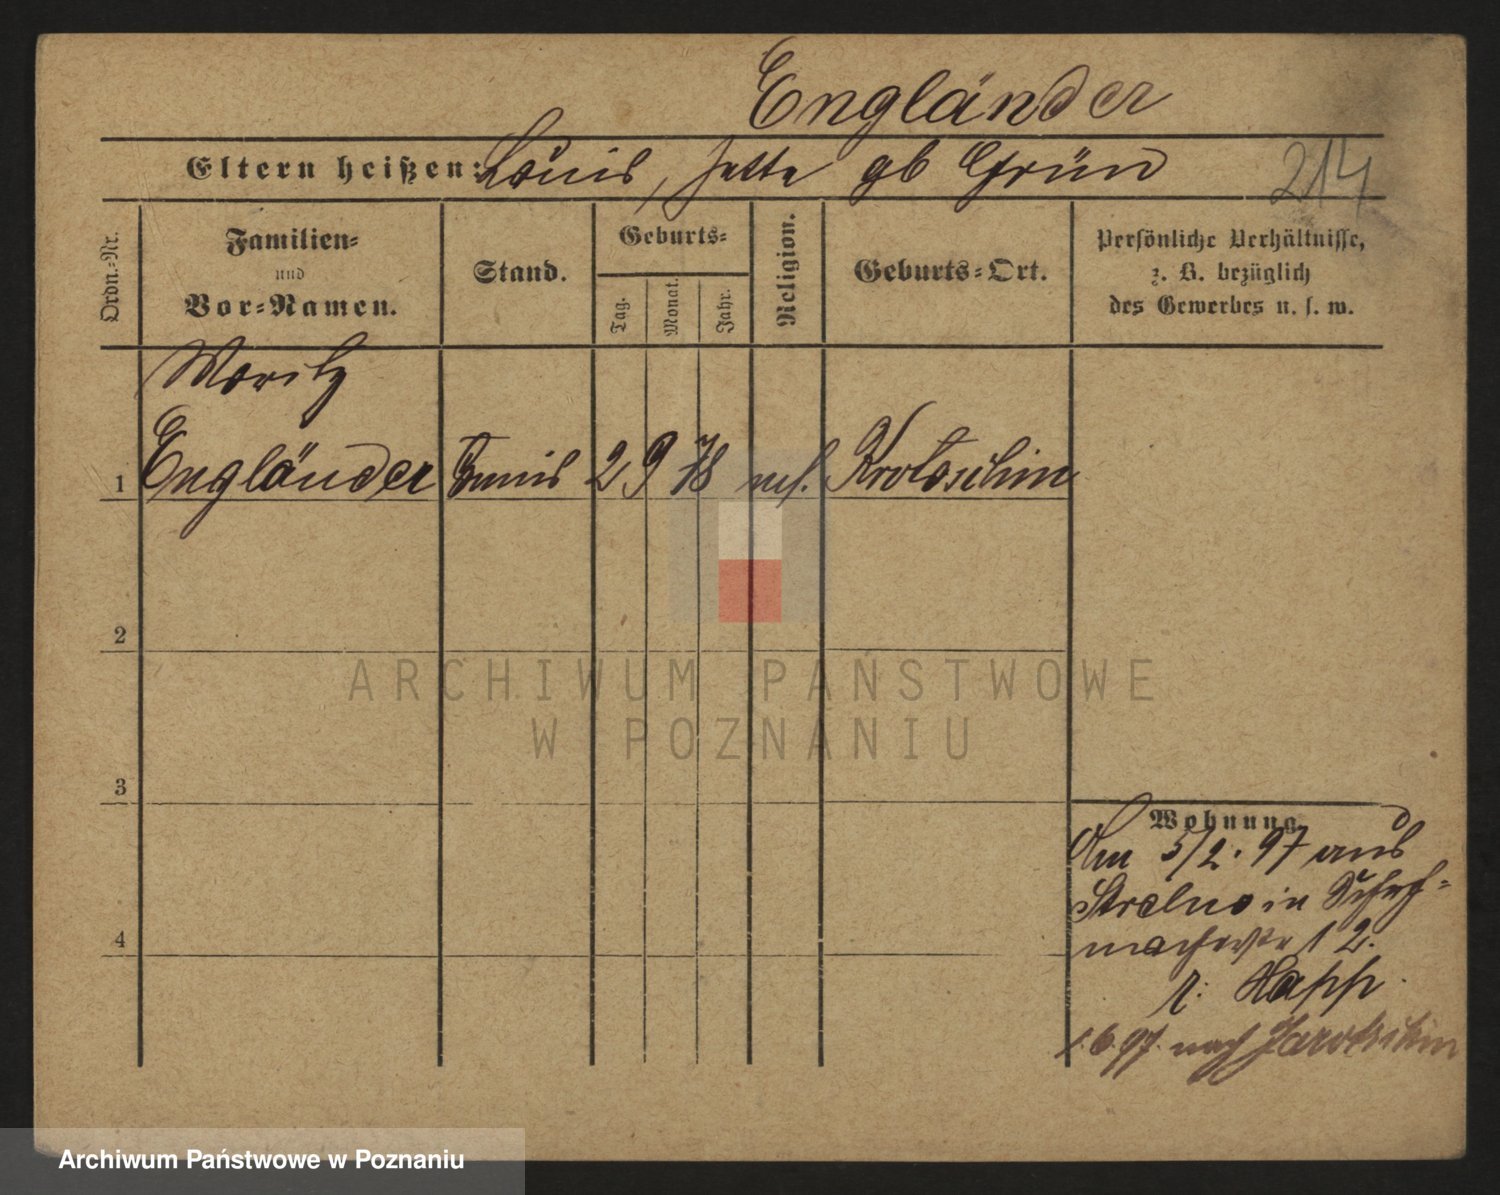 Engländer
Eltern heißen: Louis, Jette gb Grün
214
Ordn.-Nr.
Familien-
und
Vor-Namen.
Stand.
Geburts-
Tag.
Monat.
Jahr.
Religion.
Geburts-Ort.
Persönliche Verhältnisse,
z. B. bezüglich
des Gewerbes u. s. w.
Moritz
1 Engländer 2 9 78 Krotoschin
2
3
4
Wohnung
Am 5/2. 97 aus
Strelno in Schuh-
macherstr 12.
b. Happ.
1.6.97. nach Jarotschin
ARCHIWUM PAŃSTWOWE
W POZNANIU
Archiwum Państwowe w Poznaniu